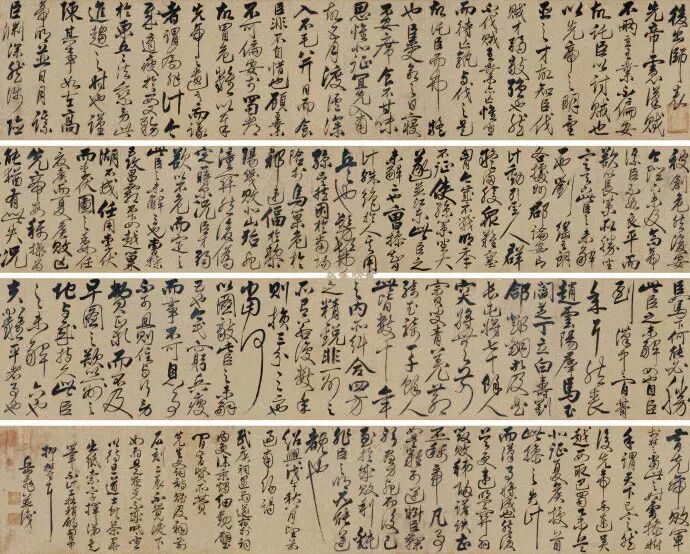 後出師表
先帝慮漢賊
不兩立王業不偏安
故託臣以討賊也
以先帝之明量
臣之才故知臣伐
賊才弱敵強也然
不伐賊王業亦亡惟坐
而待亡孰與伐之是
故託臣而弗疑
也臣受命之日寢
不安席食不甘味
思惟北征宜先入南
故五月渡瀘深
入不毛并日而食
臣非不自惜也顧王業
不可偏安於蜀都
故冒危難以奉
先帝之遺意而議
者謂為非計今
賊適疲於西又務
於東兵法乘勞此
進趨之時也謹
陳其事如左高
帝明並日月謀
臣淵深然涉險
被創危然後安
今陛下未及高帝
謀臣不如良平而
欲以長策取勝坐
定天下此臣之未解一
也劉繇王朗
各據州郡論安
言計動引聖人群
疑滿腹眾難塞
胸今歲不戰明年
不征使孫策坐大
遂并江東此臣之
未解二也曹操智
計殊絕於人其用
兵也髣髴
孫吳然困於南陽
險於烏巢危於
祁連偪於黎
陽幾敗北山殆死
潼關然後偽
定一時耳況臣才弱
而欲以不危而定
之此臣之未解三也曹操
五攻昌霸不下四越巢
湖不成任用李服
而李服圖之委任
夏侯而夏侯敗亡
先帝每稱操為
能猶有此失況
臣駑下何能必勝
此臣之未解四也自臣
到漢中中間朞
年耳然喪
趙雲陽群馬玉
閻芝丁立白壽劉
郃鄧銅等及曲
長屯將七十餘人
突將無前
賨叟青羌散
騎武騎一千餘人
此皆數十年
之內所糾合四方
之精銳非一州之
所有若復數年
則損三分之二
也當何
以圖敵此臣之未解
五也今民窮兵疲
而事不可息事
不可息則住與行勞
費正等而不及
早圖之欲以一州之
地與賊持久此臣
之未解六也
夫難平者事也
昔先帝敗軍
於楚當此時曹操拊
手謂天下已定然
後先帝東連吳
越西取巴蜀舉兵
北征夏侯授首
此操之失計
而漢事將成也然後
吳更違盟關羽
毀敗秭歸蹉跌曹
丕稱帝凡事
如是難可逆料臣鞠
躬盡力死而後已
至於成敗利鈍
非臣之明所能逆
覩也
紹興戊午秋八月望前
過南陽謁
武侯祠遇雨遂宿於祠
內更深秉燭細觀壁
間昔賢所贊
先生文詞詩賦及祠前
石刻二表不覺淚下
如雨是夜竟不成眠坐
以待旦道士獻茶畢
出紙索字揮涕走
筆不計工拙稍舒胸中
抑鬱耳
岳飛並識